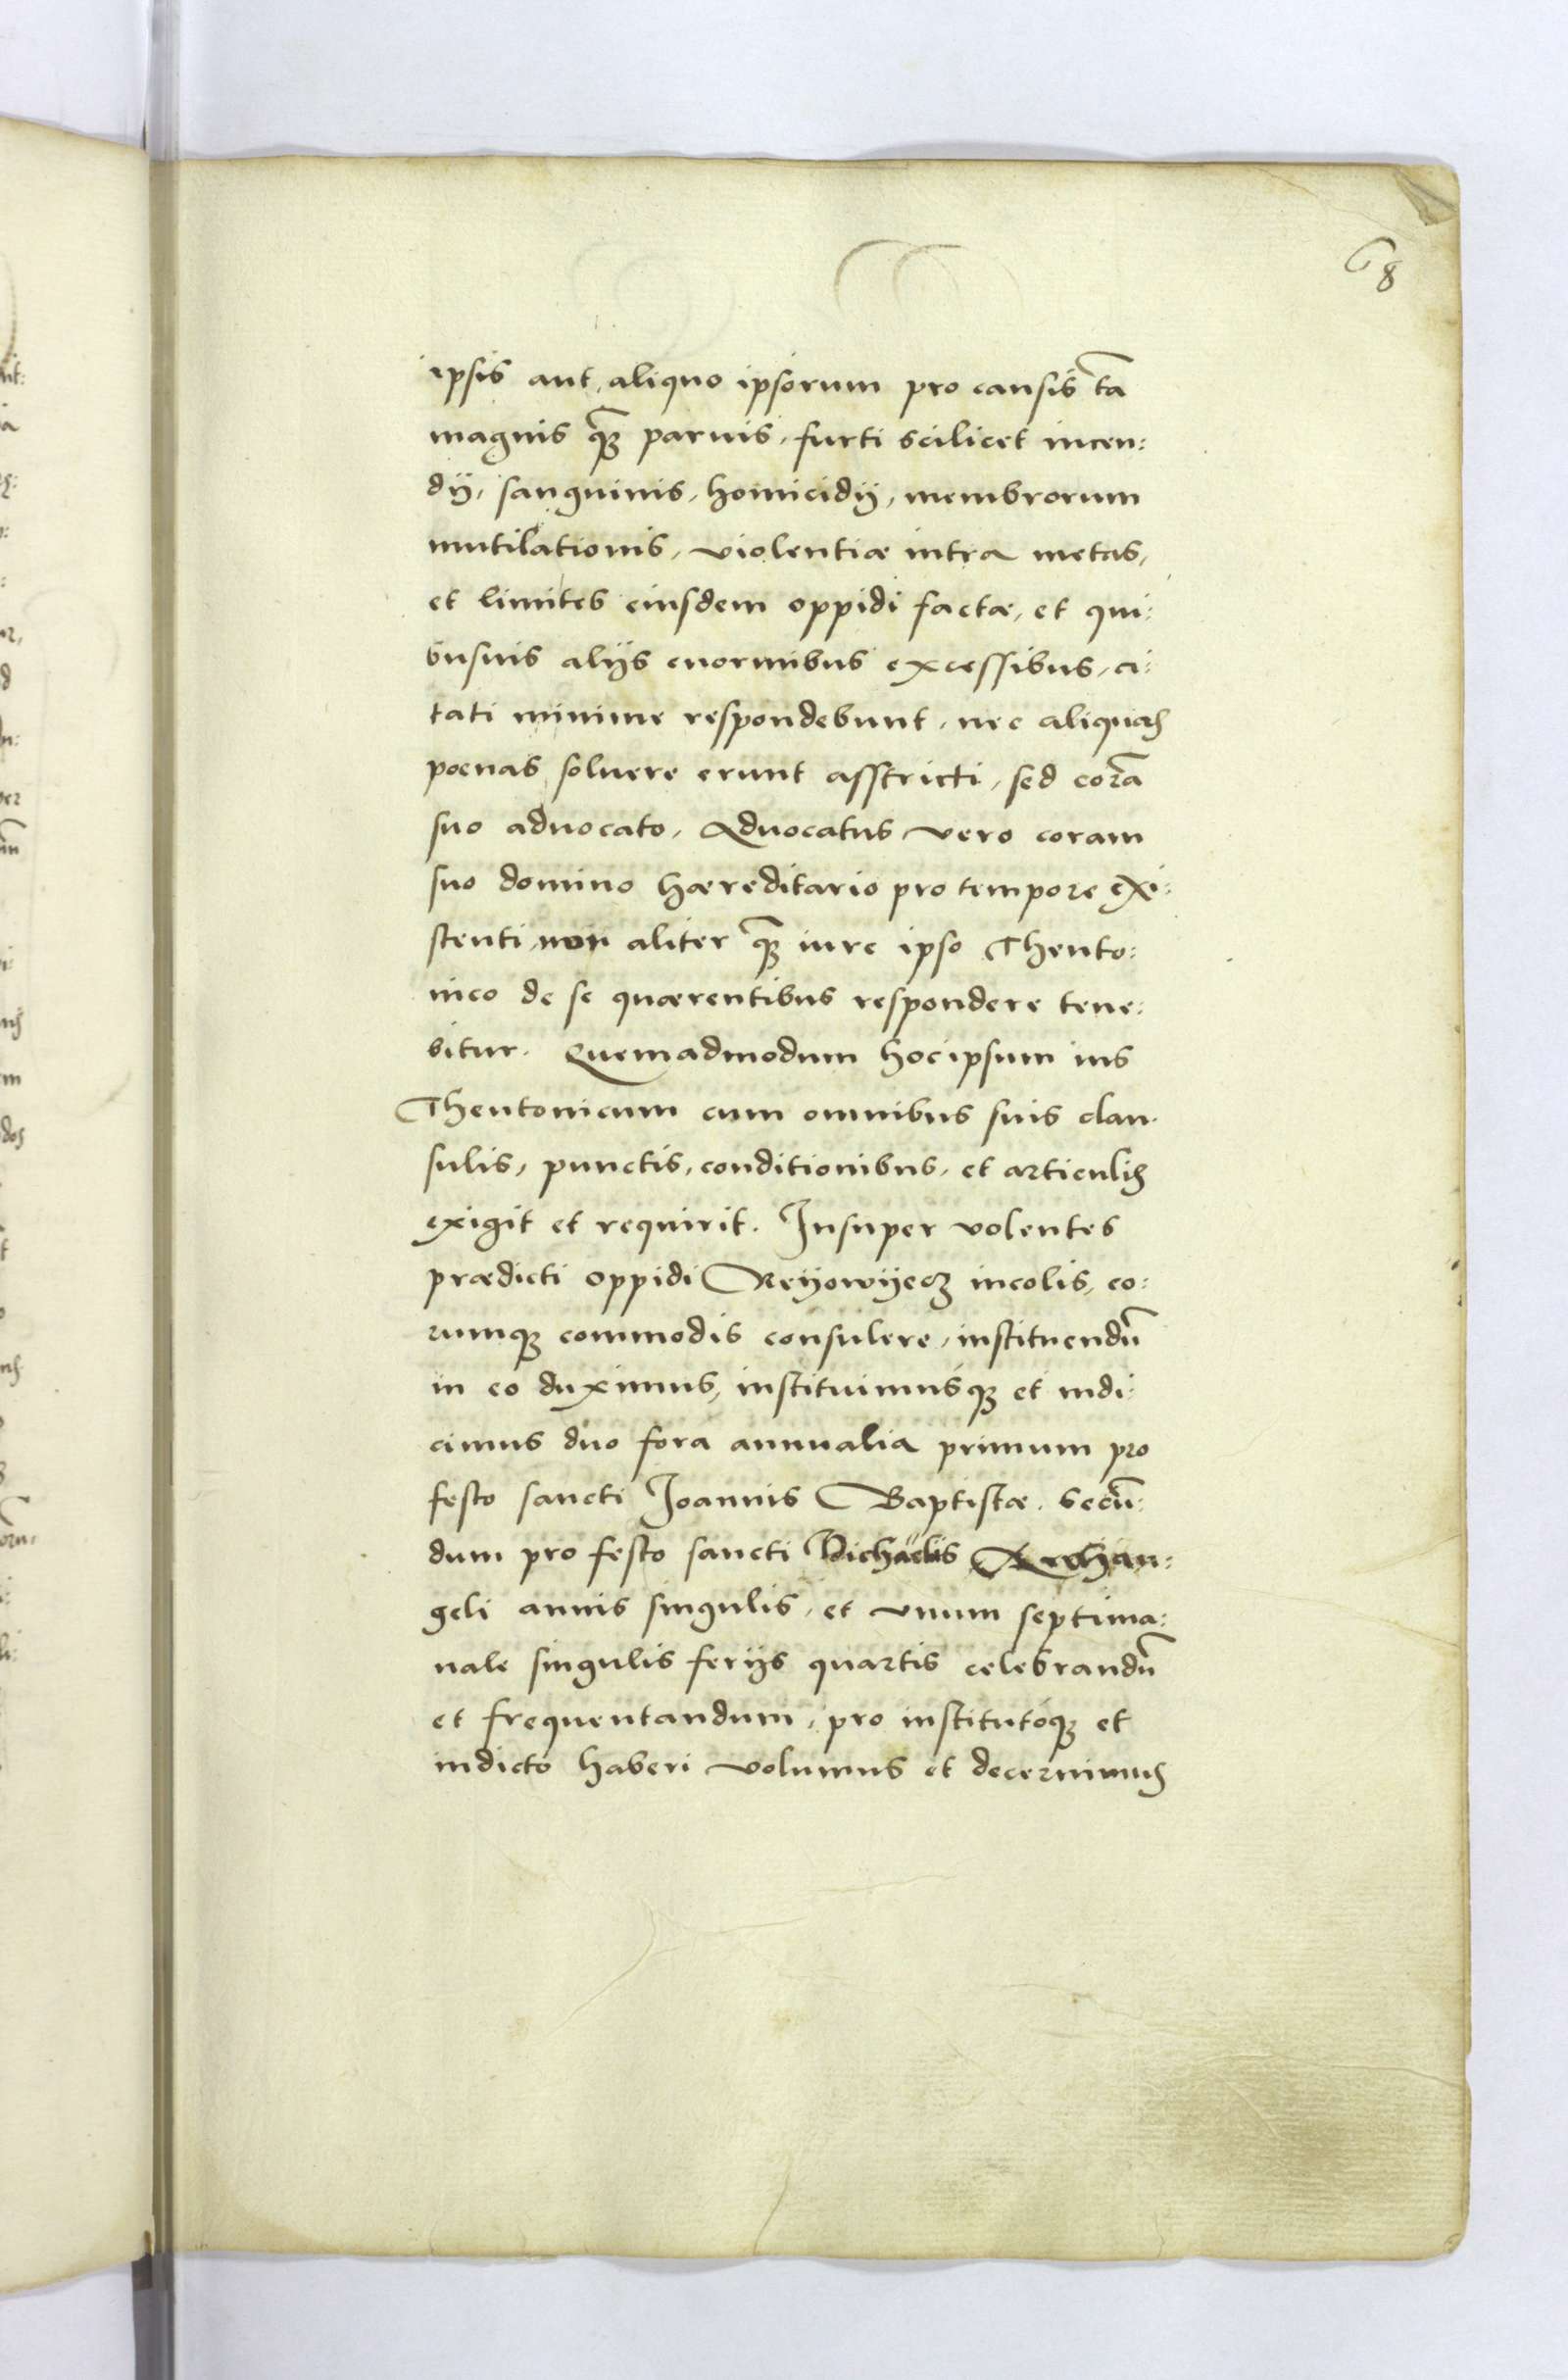 68
ipsis aut aliquo ipsorum pro causis tā
magnis ꝙ̄ paruis, furti scilicet incen:
dij, sanguinis, homicidij, membrorum
mutilationis, violentiæ intra metas,
et limites eiusdem oppidi factæ, et qui:
busuis alijs enormibus excessibus, ci:
tati minime respondebunt, nec aliquas
poenas soluere erunt asstricti, sed corā
suo aduocato, Aduocatus vero coram
suo domino hæreditario pro tempore exi:
stenti, non aliter ꝙ̄ iure ipso Theuto:
nico de se quærentibus respondere tene:
bitur. Quemadmodum hoc ipsum ius
Theutonicum cum omnibus suis clau:
sulis, punctis, conditionibus, et articulis
exigit et requirit. Insuper volentes
prædicti oppidi Reyowyecz incolis, eo:
rumqȝ commodis consulere, instituendū
in eo duximus, instituimusqȝ et indi:
cimus duo fora annualia primum pro
festo sancti Joannis Baptistæ. Secū:
dum pro festo sancti Michaëlis Archan:
geli annis singulis, et vnum septima:
nale singulis ferijs quartis celebrandū
et frequentandum, pro institutoqȝ et
indicto haberi volumus et decernimus